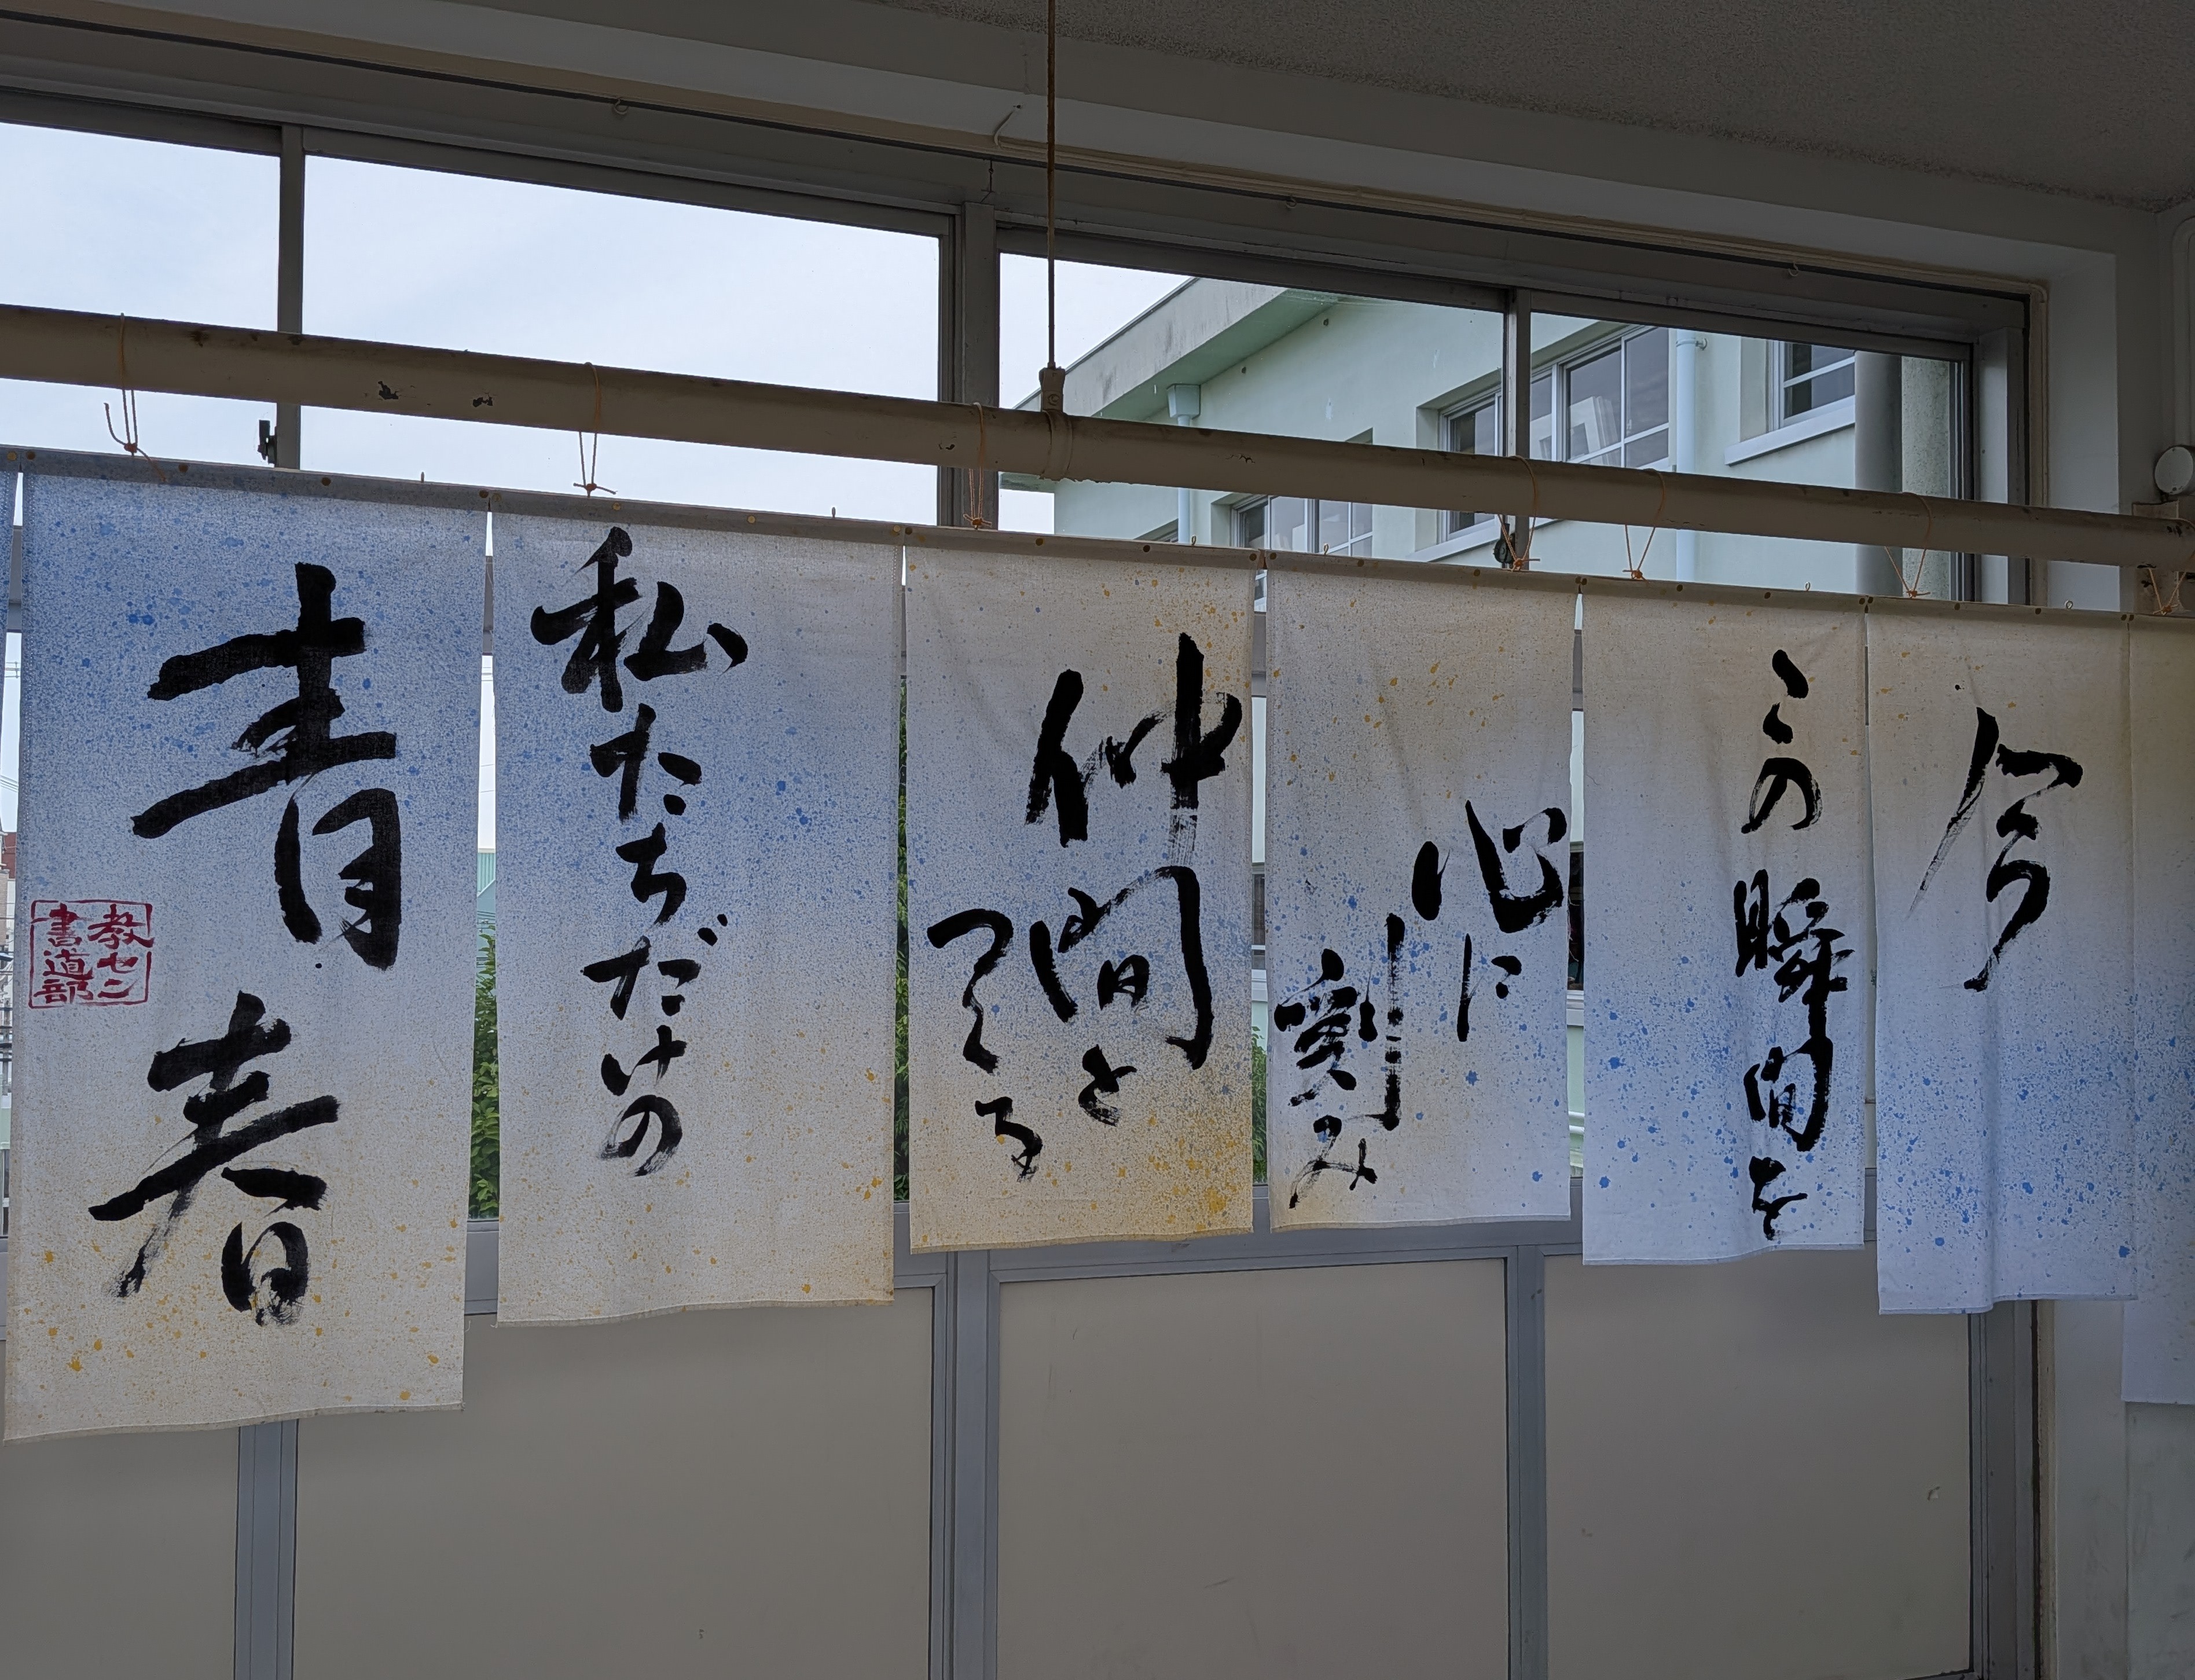 今
この瞬間を
心に
刻み
仲間と
つくる
私たちだけの
青春
教セン
書道部